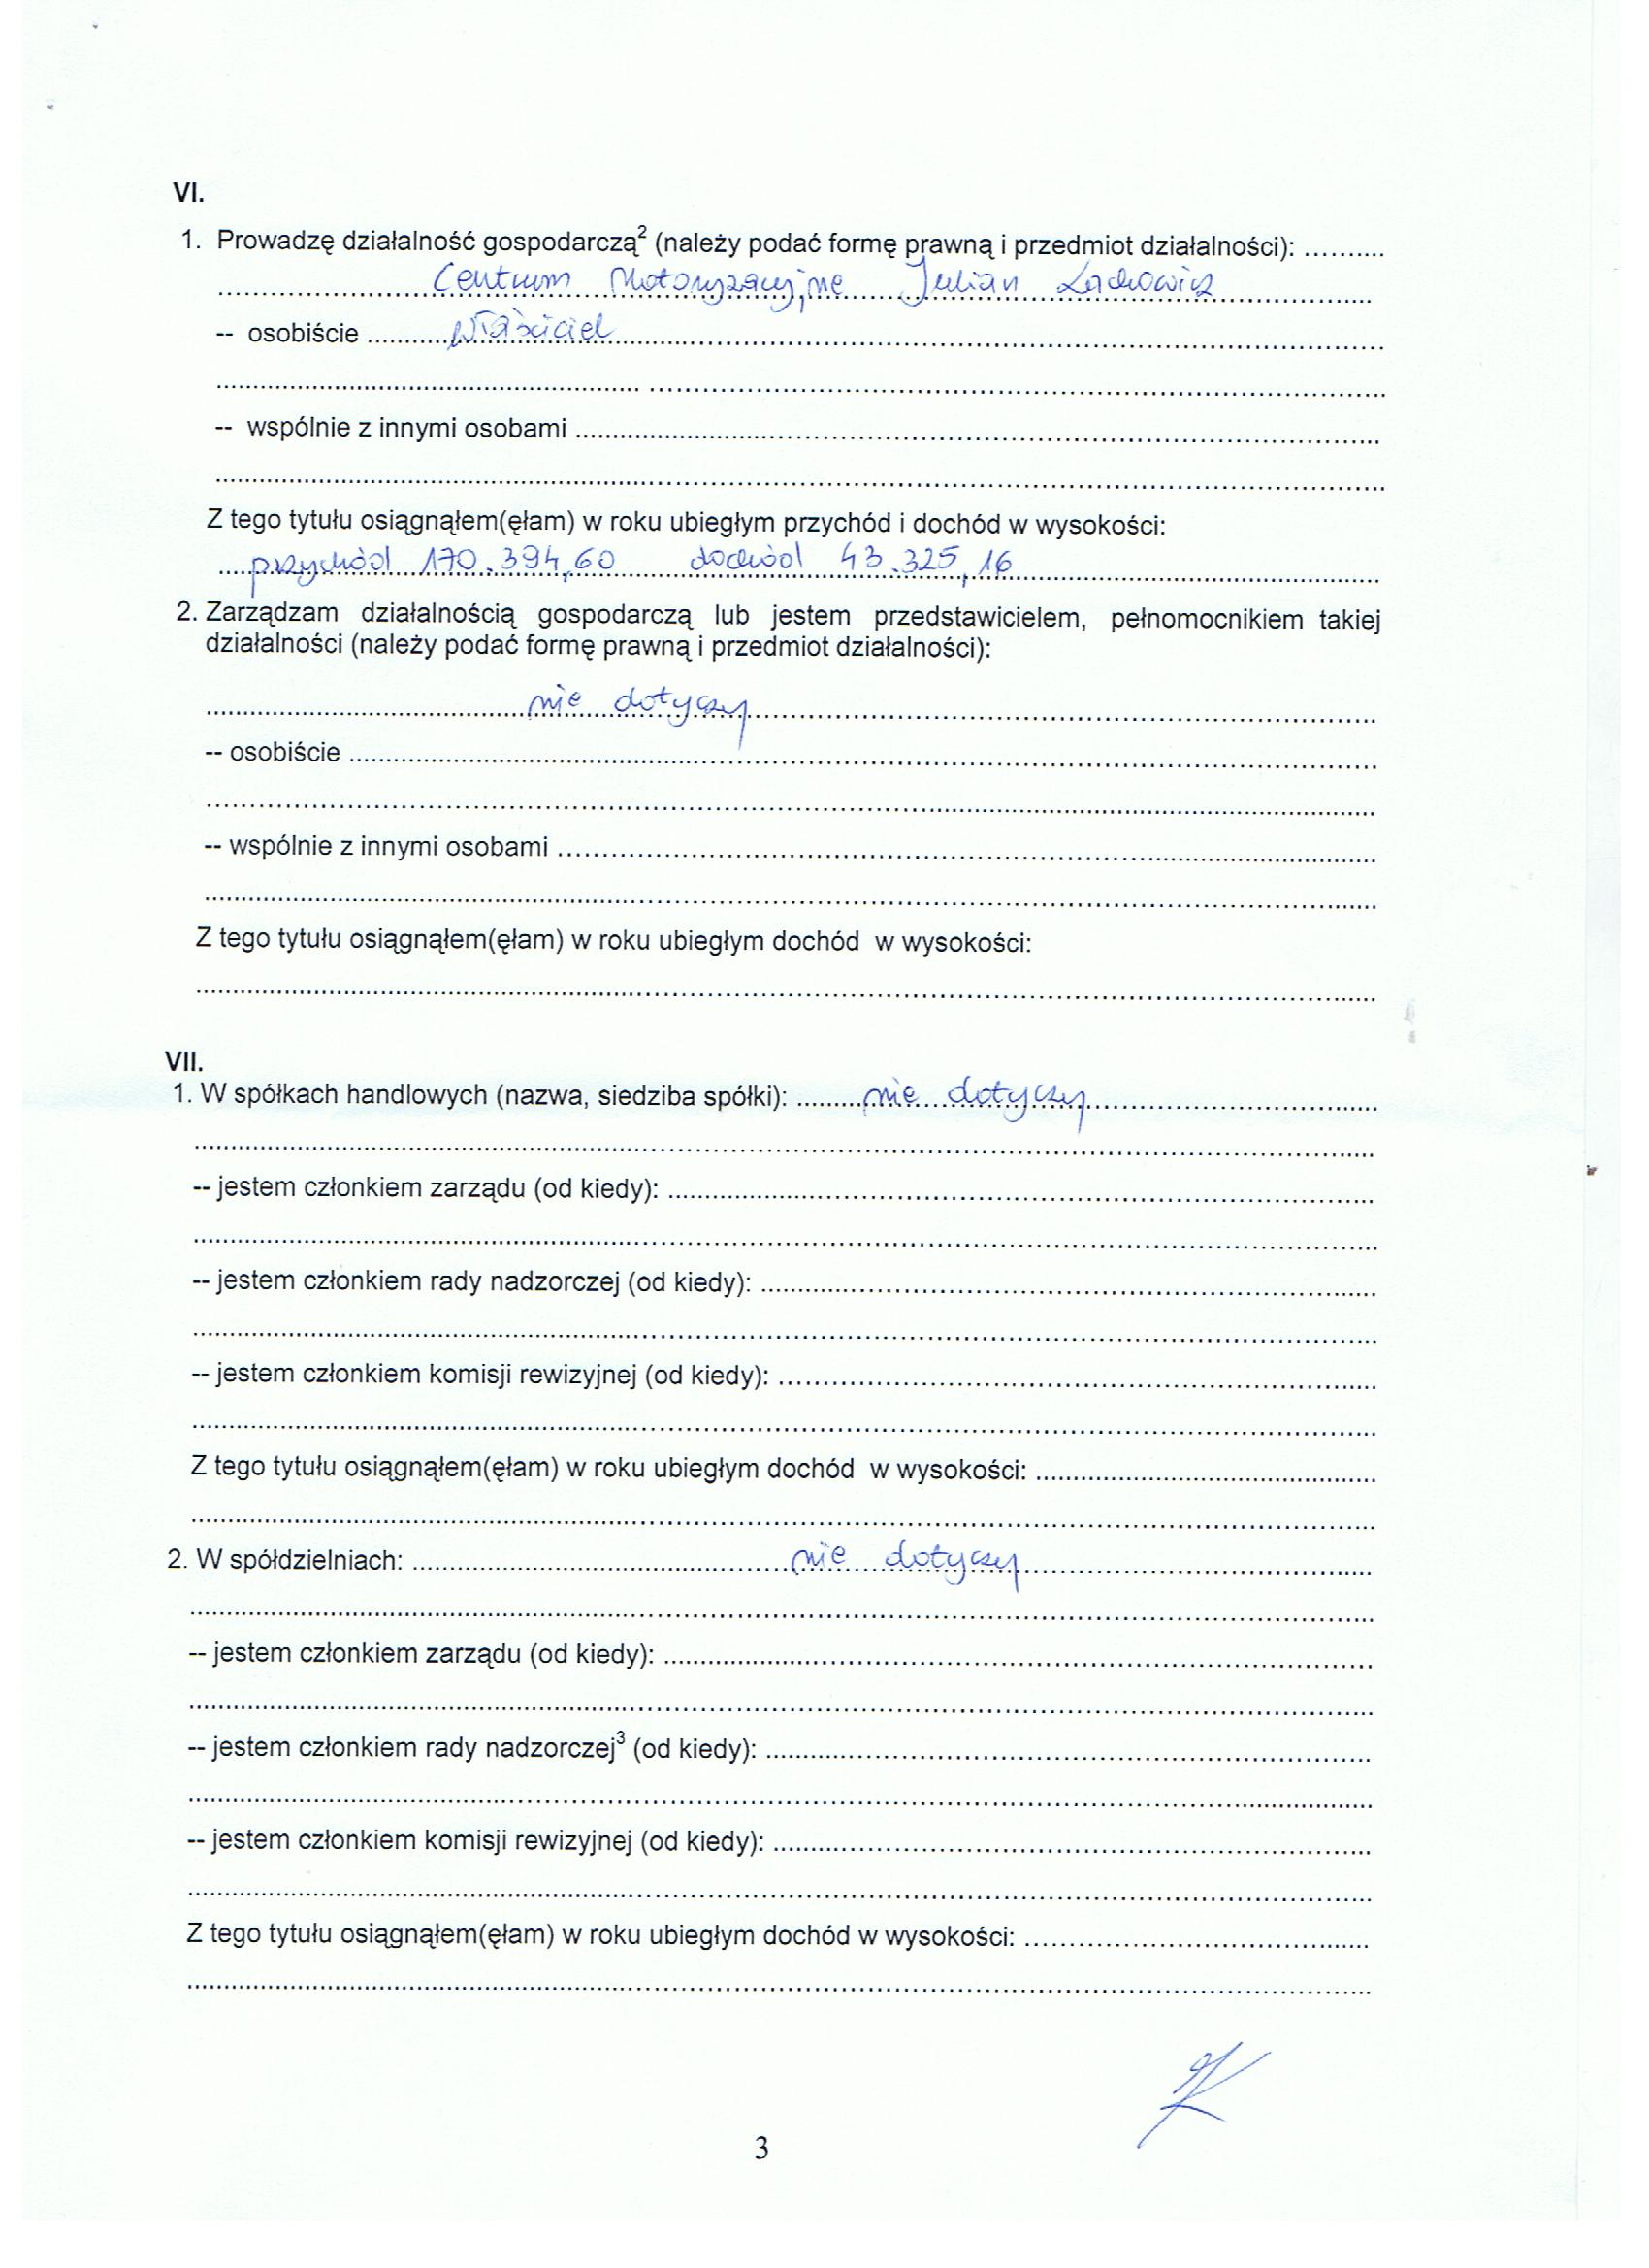 VI.
1. Prowadzę działalność gospodarczą² (należy podać formę prawną i przedmiot działalności): ..........
Centrum Motoryzacyjne Julian
-- osobiście ..... właściciel .....
-- wspólnie z innymi osobami .....
Z tego tytułu osiągnąłem(ęłam) w roku ubiegłym przychód i dochód w wysokości:
przychód 170.394,60 dochód 43.325,16
2. Zarządzam działalnością gospodarczą lub jestem przedstawicielem, pełnomocnikiem takiej
działalności (należy podać formę prawną i przedmiot działalności):
nie dotyczy
-- osobiście .....
-- wspólnie z innymi osobami .....
Z tego tytułu osiągnąłem(ęłam) w roku ubiegłym dochód w wysokości:
VII.
1. W spółkach handlowych (nazwa, siedziba spółki): ..... nie dotyczy .....
-- jestem członkiem zarządu (od kiedy): .....
-- jestem członkiem rady nadzorczej (od kiedy): .....
-- jestem członkiem komisji rewizyjnej (od kiedy): .....
Z tego tytułu osiągnąłem(ęłam) w roku ubiegłym dochód w wysokości: .....
2. W spółdzielniach: ..... nie dotyczy .....
-- jestem członkiem zarządu (od kiedy): .....
-- jestem członkiem rady nadzorczej³ (od kiedy): .....
-- jestem członkiem komisji rewizyjnej (od kiedy): .....
Z tego tytułu osiągnąłem(ęłam) w roku ubiegłym dochód w wysokości: .....
3